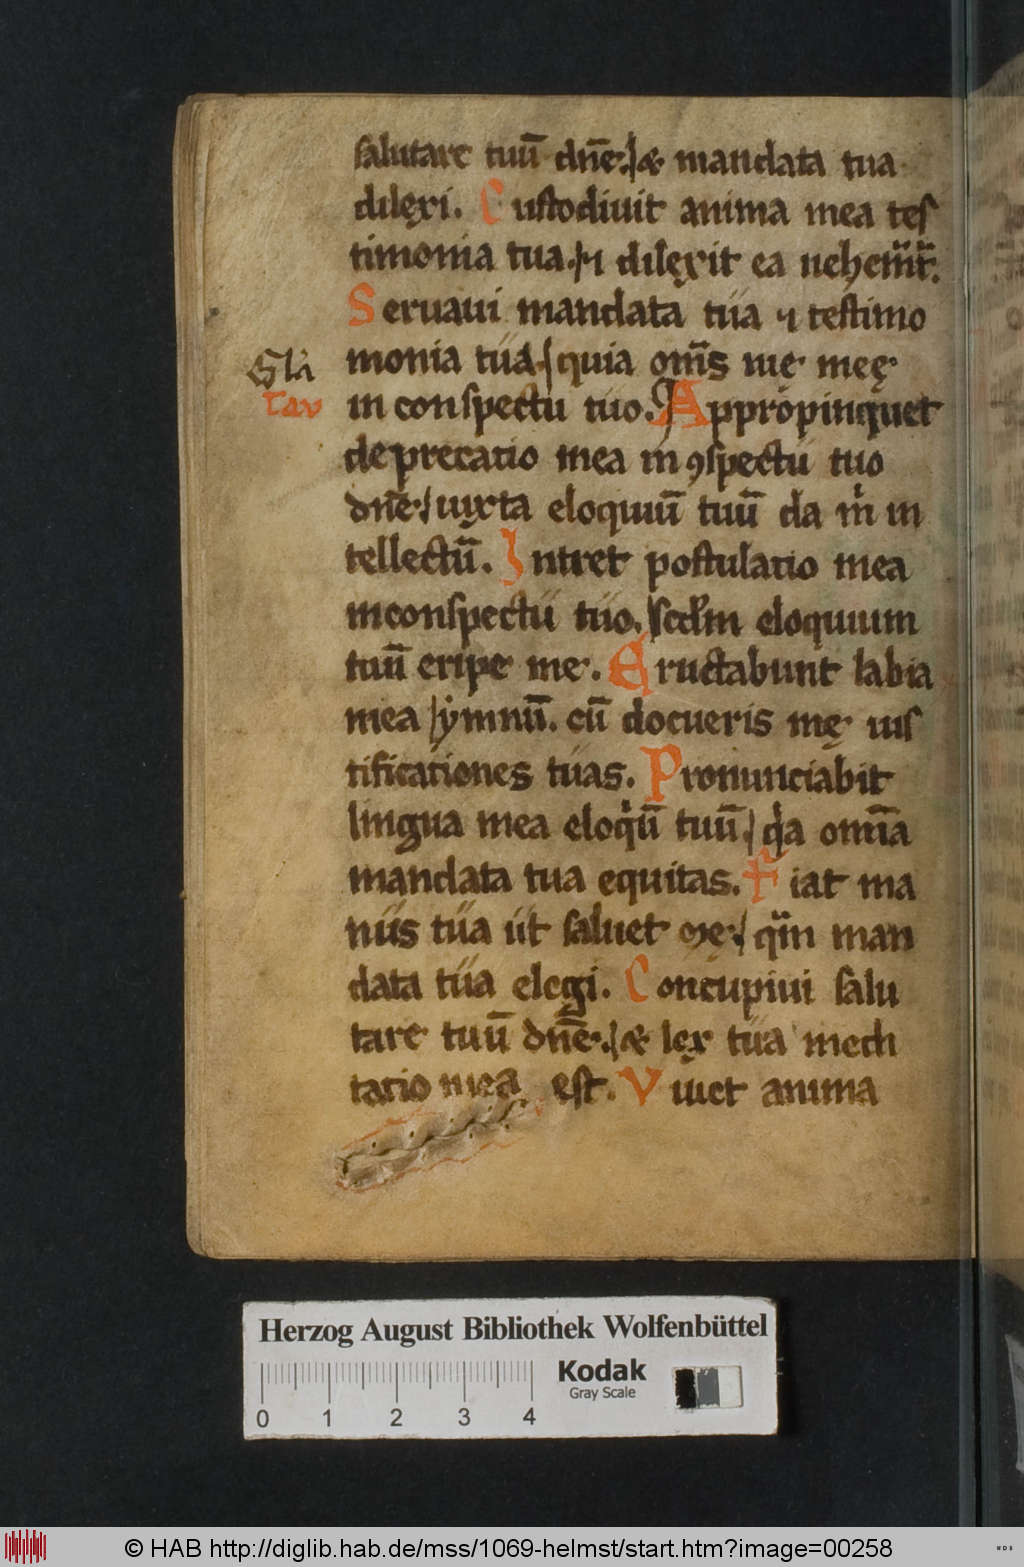 salutare tuū dn̄e. & mandata tua
dilexi. Custodiuit anima mea tes
timonia tua. ⁊ dilexit ea uehem̄t̄.
Seruaui mandata tua ⁊ testimo
Gl̄a monia tua. quia om̄s uie meę
Tav in conspectu tuo. Appropinquet
deprecatio mea in ꝯspectu tuo
dn̄e iuxta eloquiū tuū da m̍ in
tellectū. Intret postulatio mea
inconspectu tuo. scd̄m eloquium
tuū eripe me. Eructabunt labia
mea ẏmnū. cū docueris mę ius
tificationes tuas. Pronunciabit
lingua mea eloq̍ū tuū q̍a omīa
mandata tua equitas. Fiat ma
nus tua ut saluet me. qm̄ man
data tua elegi. Concupiui salu
tare tuū dn̄e. & lex tua medi
tatio mea est. Viuet anima
Herzog August Bibliothek Wolfenbüttel
Kodak
Gray Scale
0 1 2 3 4
© HAB http://diglib.hab.de/mss/1069-helmst/start.htm?image=00258